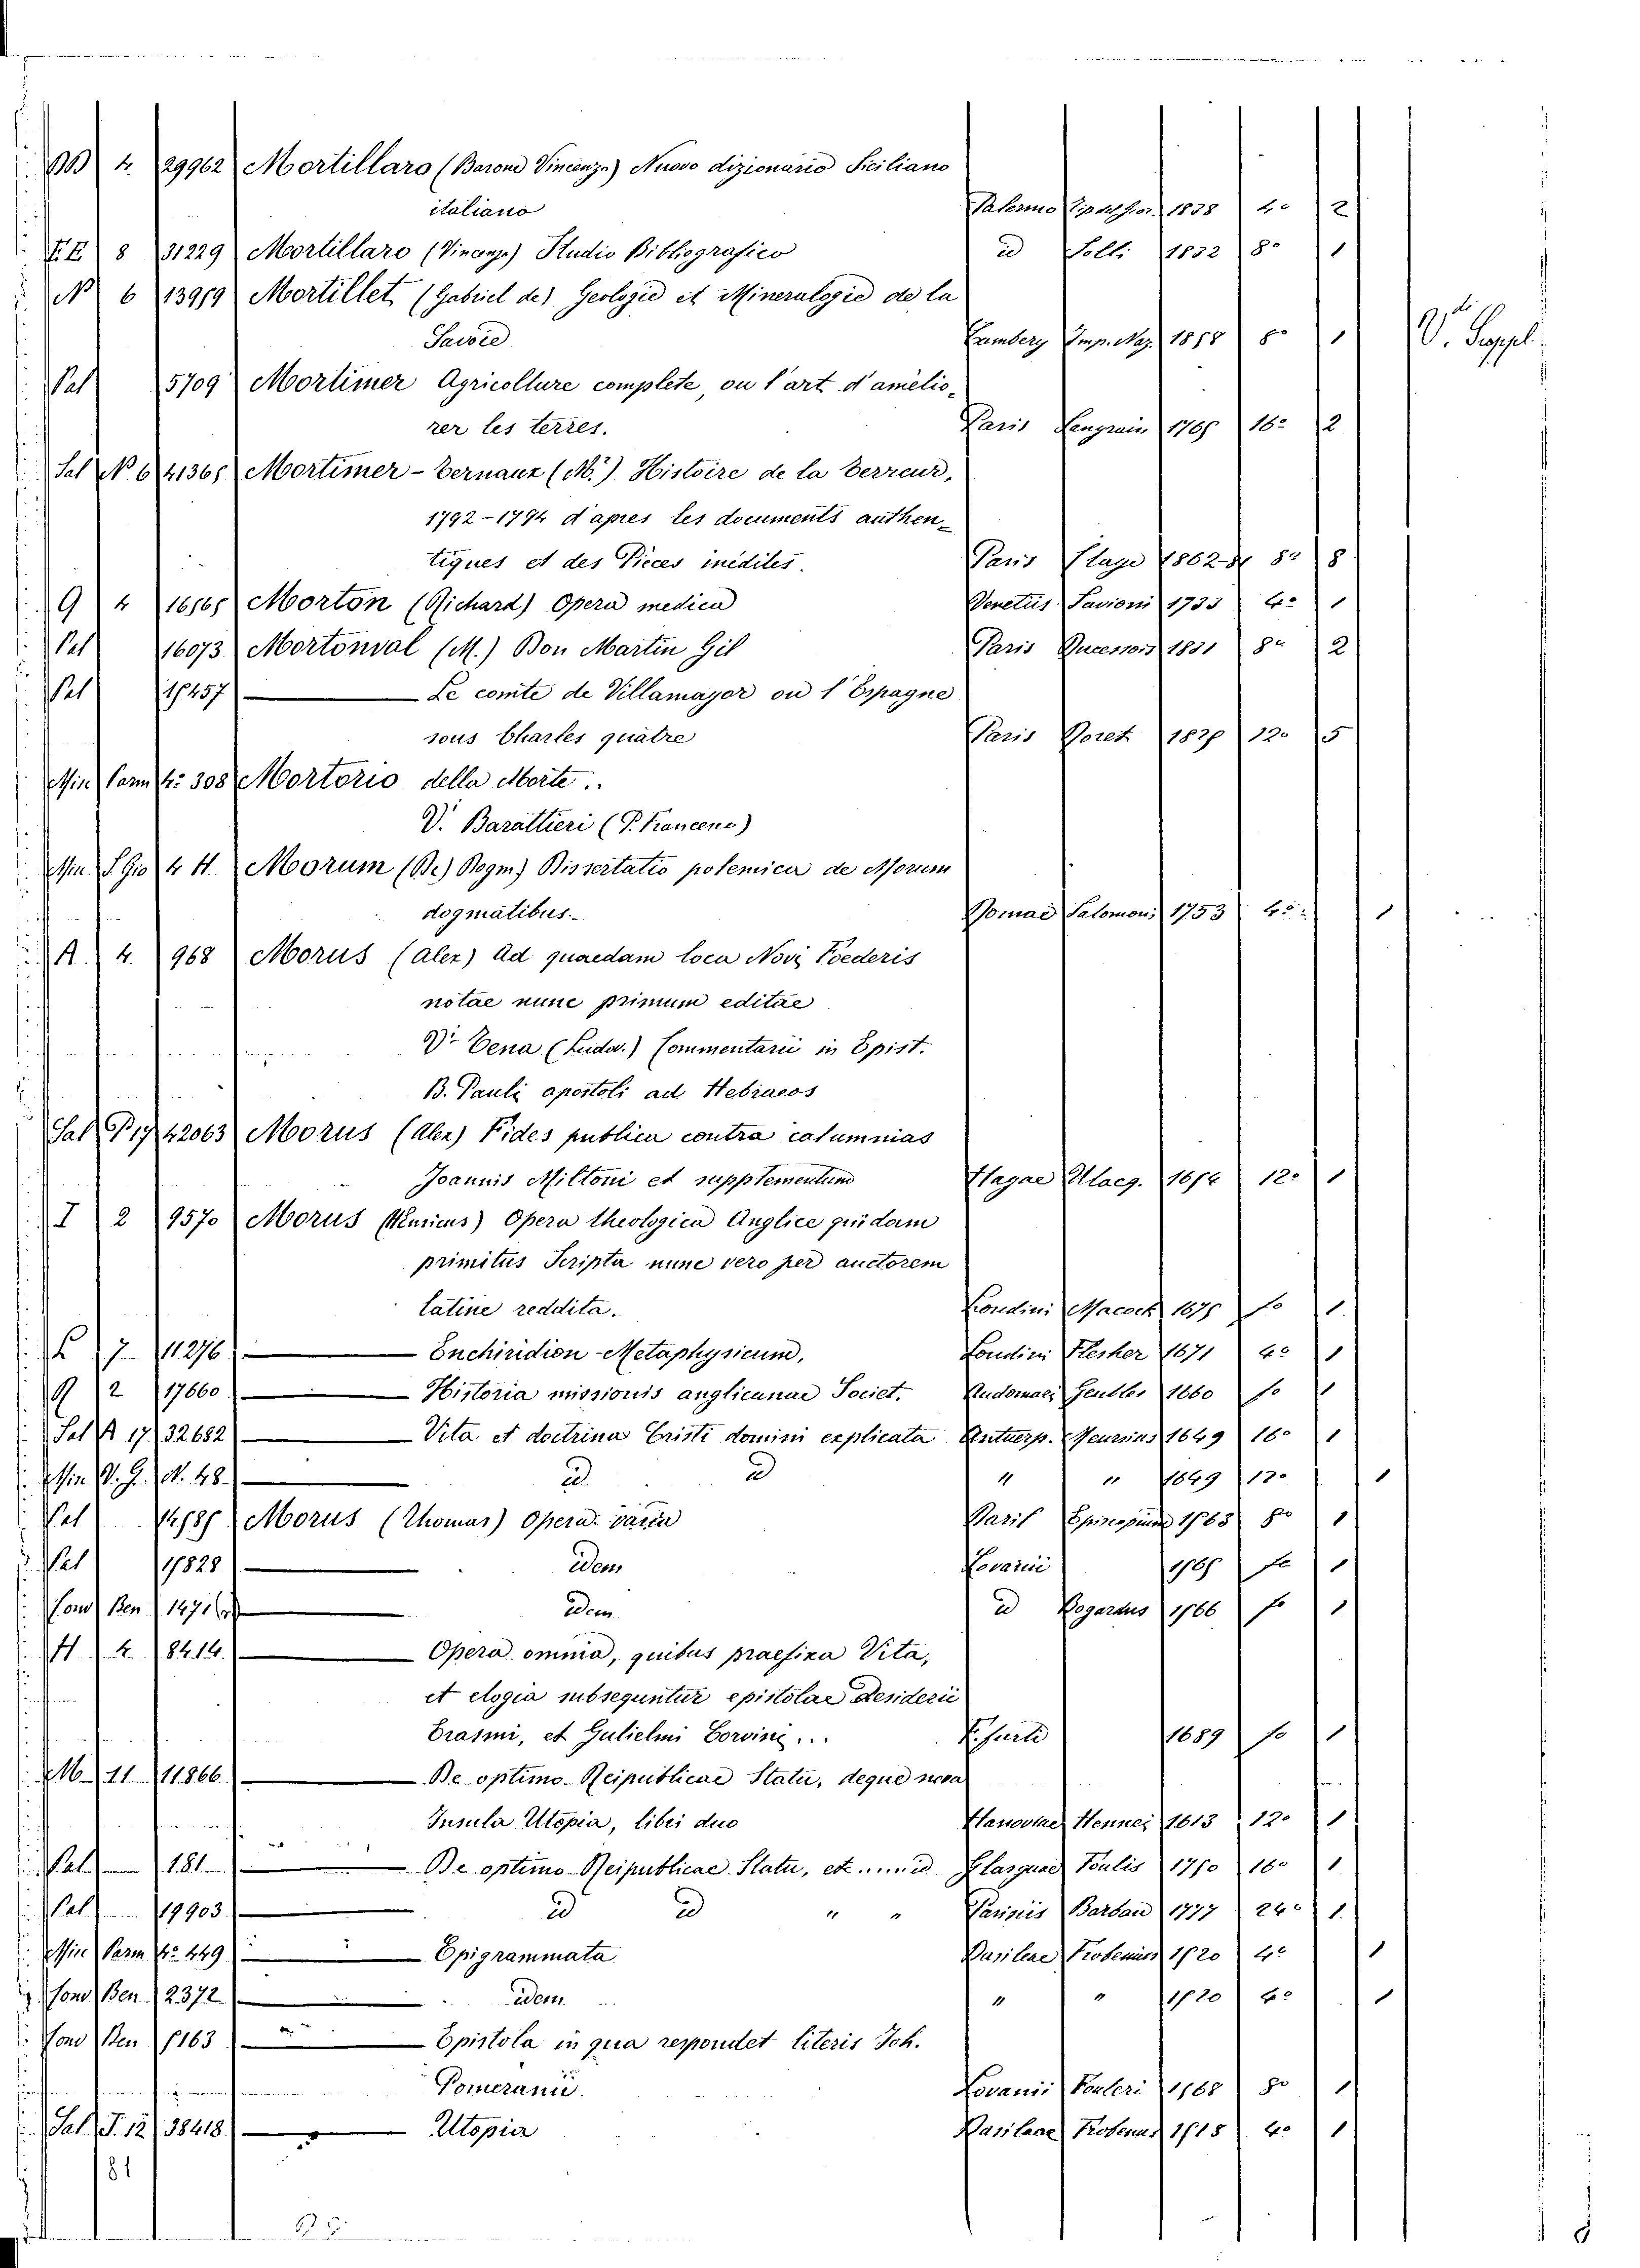 BB 4. 29962 Mortillaro (Barone Vincenzo) Nuovo dizionario Siciliano
italiano Palermo Tip. del Gior. 1838 4o 2
EE 8 31229 Mortillaro (Vincenzo) Studio Bibliografico id Solli 1832 8o 1
N 6 13959 Mortillet (Gabriel de) Geologie et Mineralogie de la
Savoie Imp. Naz. 1858 8o 1 V. Suppl.
Pal 5709 Mortimer Agricolture complete, ou l'art d'amelio-
rer les terres. Paris 1765 16o 2
Sal N. 6 41365 Mortimer-Ternaux (M.r) Histoire de la Terreur,
1792-1794 d'apres les documents authen-
tiques et des Pièces inédites. Paris 1862- 8o 8
G 4 16565 Morton (Richard) Opera medica Venetiis Savioni 1733 4o 1
Pal 16073 Mortonval (M.) Don Martin Gil Paris 1831 8o 2
Pal 15457 Le comte de Villamayor ou l'Espagne
sous Charles quatre Paris 12o 5
Min Parm 4o 308 Mortorio della Morte..
V. Barattieri (P. )
Min S Gio 4 H Morum (De) Dissertatio polemica de Morum
dogmatibus. Romae Salomoni 1753 4o 1
A. 4. 968 Morus (Alex) Ad quaedam loca Novi Foederis
notae nunc primum editae
V. Tena (Ludov.) Commentarii in Epist.
B. Pauli apostoli ad Hebraeos
Sal P 17 42063 Morus (Alex) Fides publica contra calumnias
Joannis Miltoni et supplementum Hagae Ulacq. 1654 12o 1
I 2 9570 Morus (Henricus) Opera theologica Anglice quidem
primitus Scripta nunc vero per auctorem
latine reddita. Londini Macock 1675 fo 1
7 11276 Enchiridion Metaphysicum, Londini Flesher 1671 4o 1
G 2 17660 Historia missionis anglicanae Societ. Audomari 1660 fo 1
Sal A 17 32682 Vita et doctrina Cristi domini explicata Antuerp. Meursius 1649 16o 1
Min. V. G. N. 48. id id " " 1649 12o 1
Pal 14585 Morus (Thomas) Opera varia Paris 1563 8o 1
Pal 15828 idem Lovanii 1565 fo 1
fond Ben 1471 idem id Bogardus 1566 fo 1
H 4. 8414. Opera omnia, quibus praefixa Vita,
et elogia subsequntur epistolae Desiderii
Erasmi, et Gulielmi Corvini... 1689 fo 1
M. 11 11866. De optimo Reipublicae Statu, deque nova
Insula Utopia, libri duo Hanoviae 1613 12o 1
Pal 181 De optimo Reipublicae Statu, etc. Glasguae Foulis 1750 16o 1
Pal 19903 id id " " Parisiis Barbou 1777 24o 1
Min Parm 4o 449 Epigrammata Basileae Frobenius 1520 4o 1
fond Ben 2372 idem " " 1520 4o 1
fond Ben 5163 Epistola in qua respondet literis Joh.
Pomeranii. Lovanii Fouleri 1568 8o 1
Sal. J. 12 38418 Utopia Basileae Frobenus 1518 4o 1
81